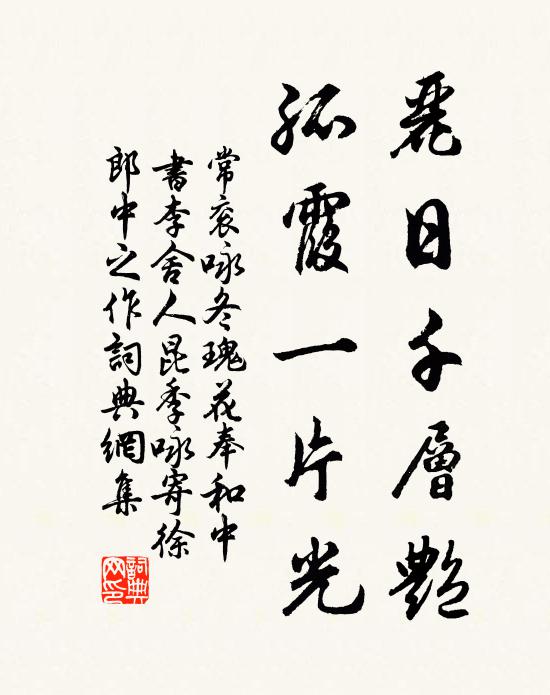 麗日千層艷
孤霞一片光
常衮咏冬瑰花奉和中
書李舍人昆季咏寄徐
郎中之作詞典網集
詞典网印